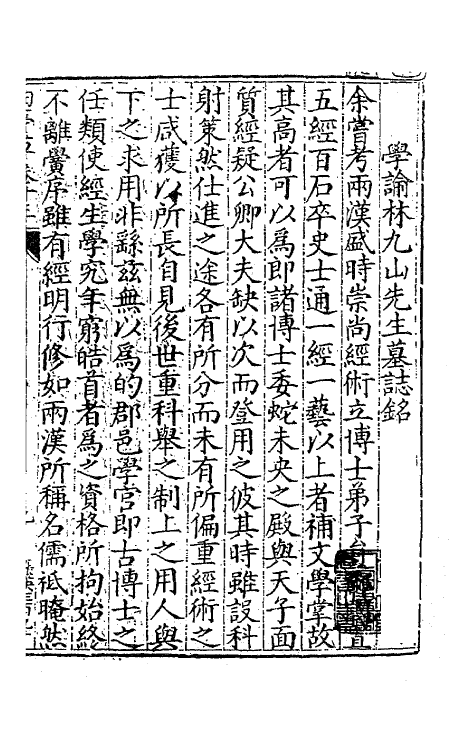 學諭林九山先生墓誌銘
余嘗考兩漢盛時崇尚經術立博士弟子員
五經百石卒史士通一經一藝以上者補文學掌故
其高者可以爲郎諸博士委蛇未央之殿與天子面
質經疑公卿大夫缺以次而登用之彼其時雖設科
射策然仕進之途各有所分而未有所偏重經術之
士咸獲以所長自見後世重科舉之制上之用人與
下之求用非繇茲無以爲的郡邑學官即古博士之
任類使經生學究年窮皓首者爲之資格所拘始終
不離黌序雖有經明行修如兩漢所稱名儒祗晻然